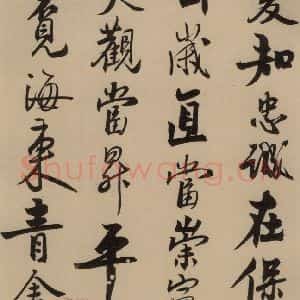 知忠誠在保
歲直當崇寧
大觀當昇平
覓海東青金
Shufawang.cn